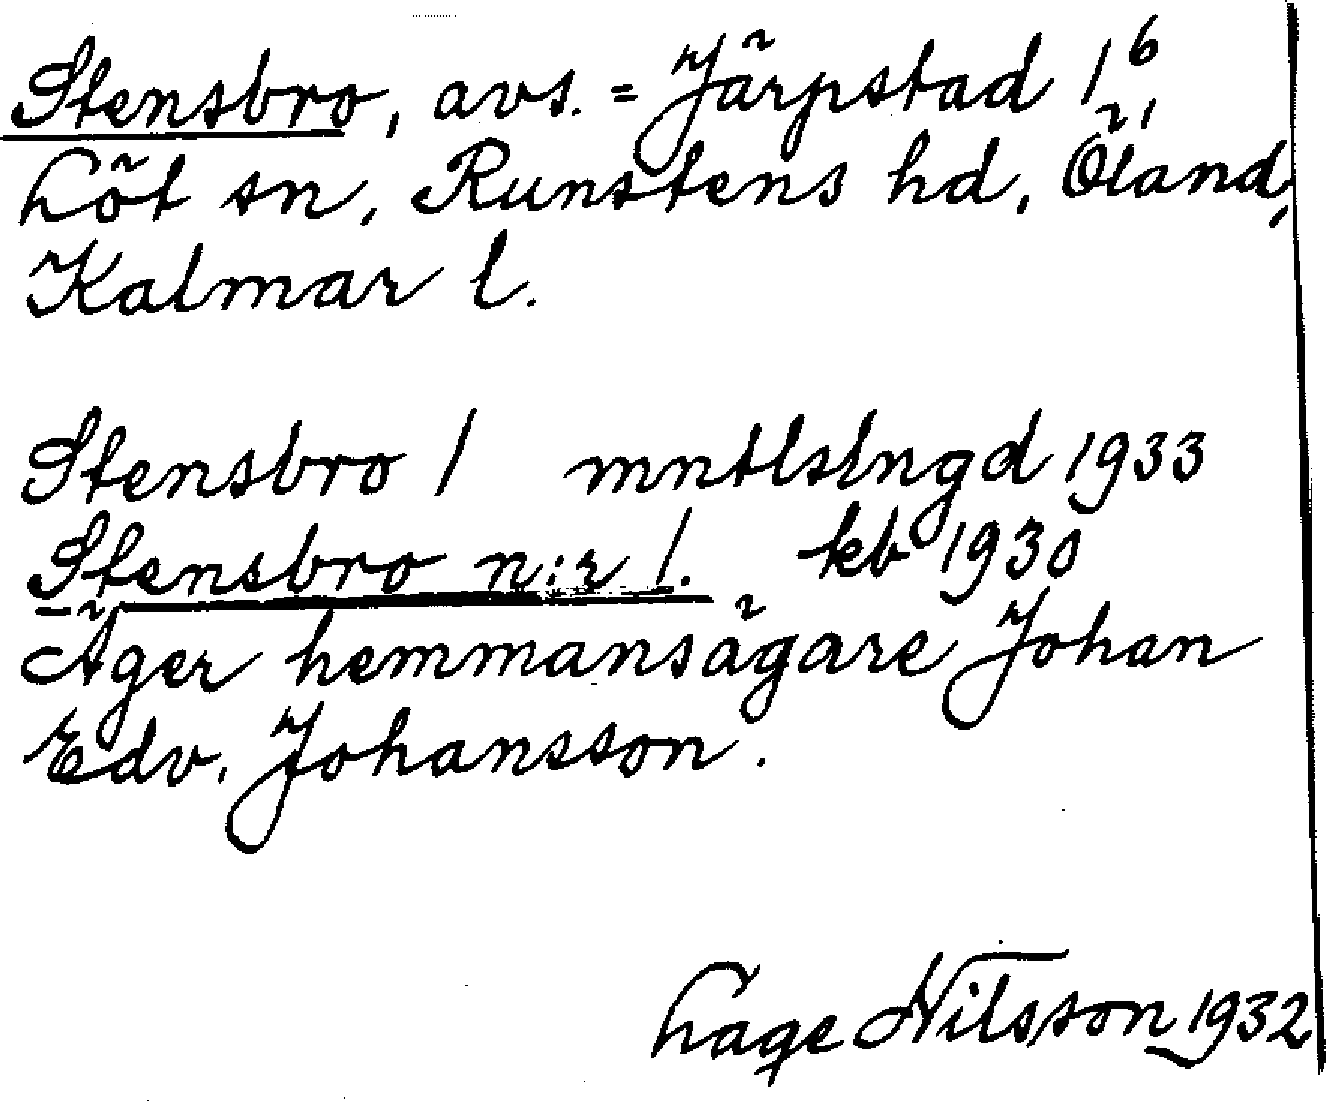 Stensbro, avs. = Järpstad 1⁶,
Löt sn, Runstens hd, Öland,
Kalmar l.
Stensbro 1 mntlslngd 1933
Stensbro n:r 1. kb 1930
Äger hemmansägare Johan
Edv. Johansson.
Lage Nilsson 1932